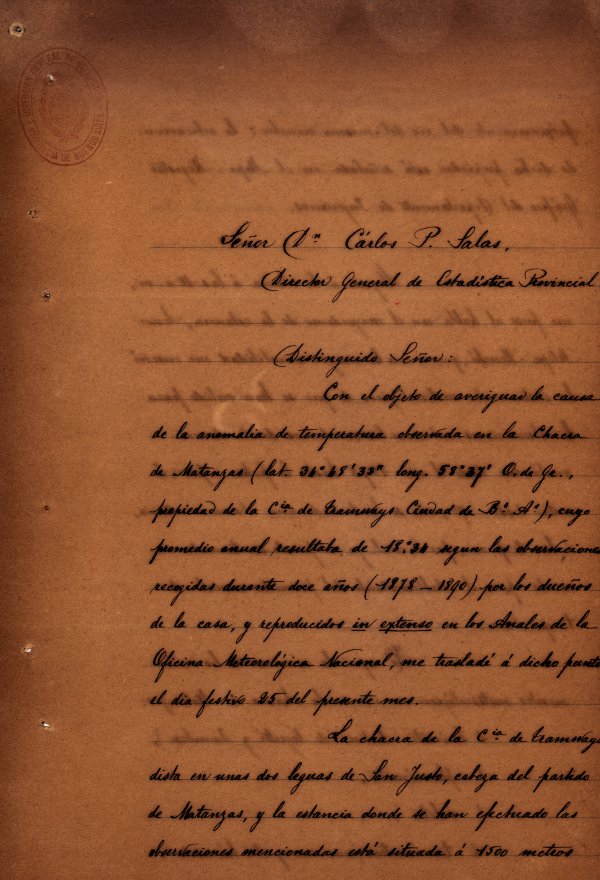 Señor Dn Cárlos P. Salas,
Director General de Estadística Provincial
Distinguido Señor:
Con el objeto de averiguar la causa
de la anomalia de temperatura observada en la Chacra
de Matanzas (lat. 34°48'33" long. 58°37' O. de Gr.,
propiedad de la Cia de Tramways Ciudad de Bs As), cuyo
promedio anual resultaba de 18°.34 segun las observaciones
recogidas durante doce años (1878 — 1890) por los dueños
de la casa, y reproducidos in extenso en los Anales de la
Oficina Meteorológica Nacional, me trasladé á dicho punto
el dia festivo 25 del presente mes.
La chacra de la Cia de Tramways
dista en unas dos leguas de San Justo, cabeza del partido
de Matanzas, y la estancia donde se han efectuado las
observaciones mencionadas está situada á 1500 metros